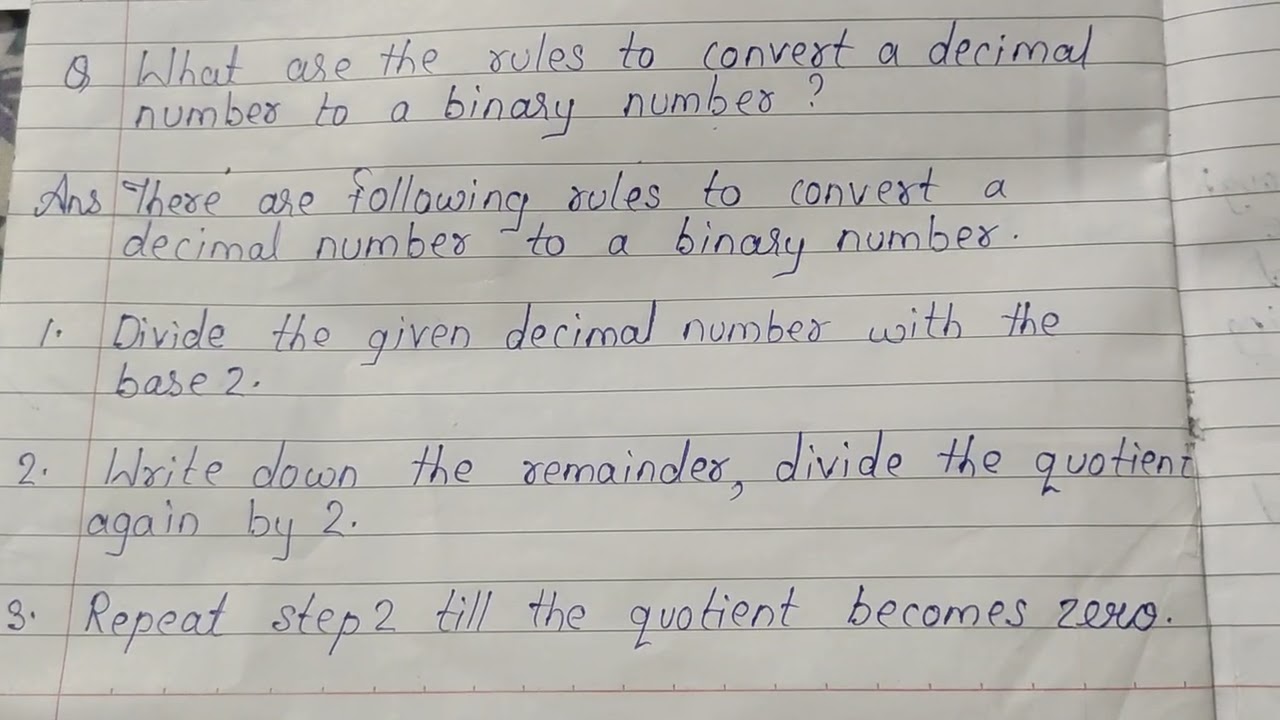 Q What are the rules to convert a decimal
number to a binary number ?
Ans There are following rules to convert a
decimal number to a binary number.
1. Divide the given decimal number with the
base 2.
2. Write down the remainder, divide the quotient
again by 2.
3. Repeat step 2 till the quotient becomes zero.